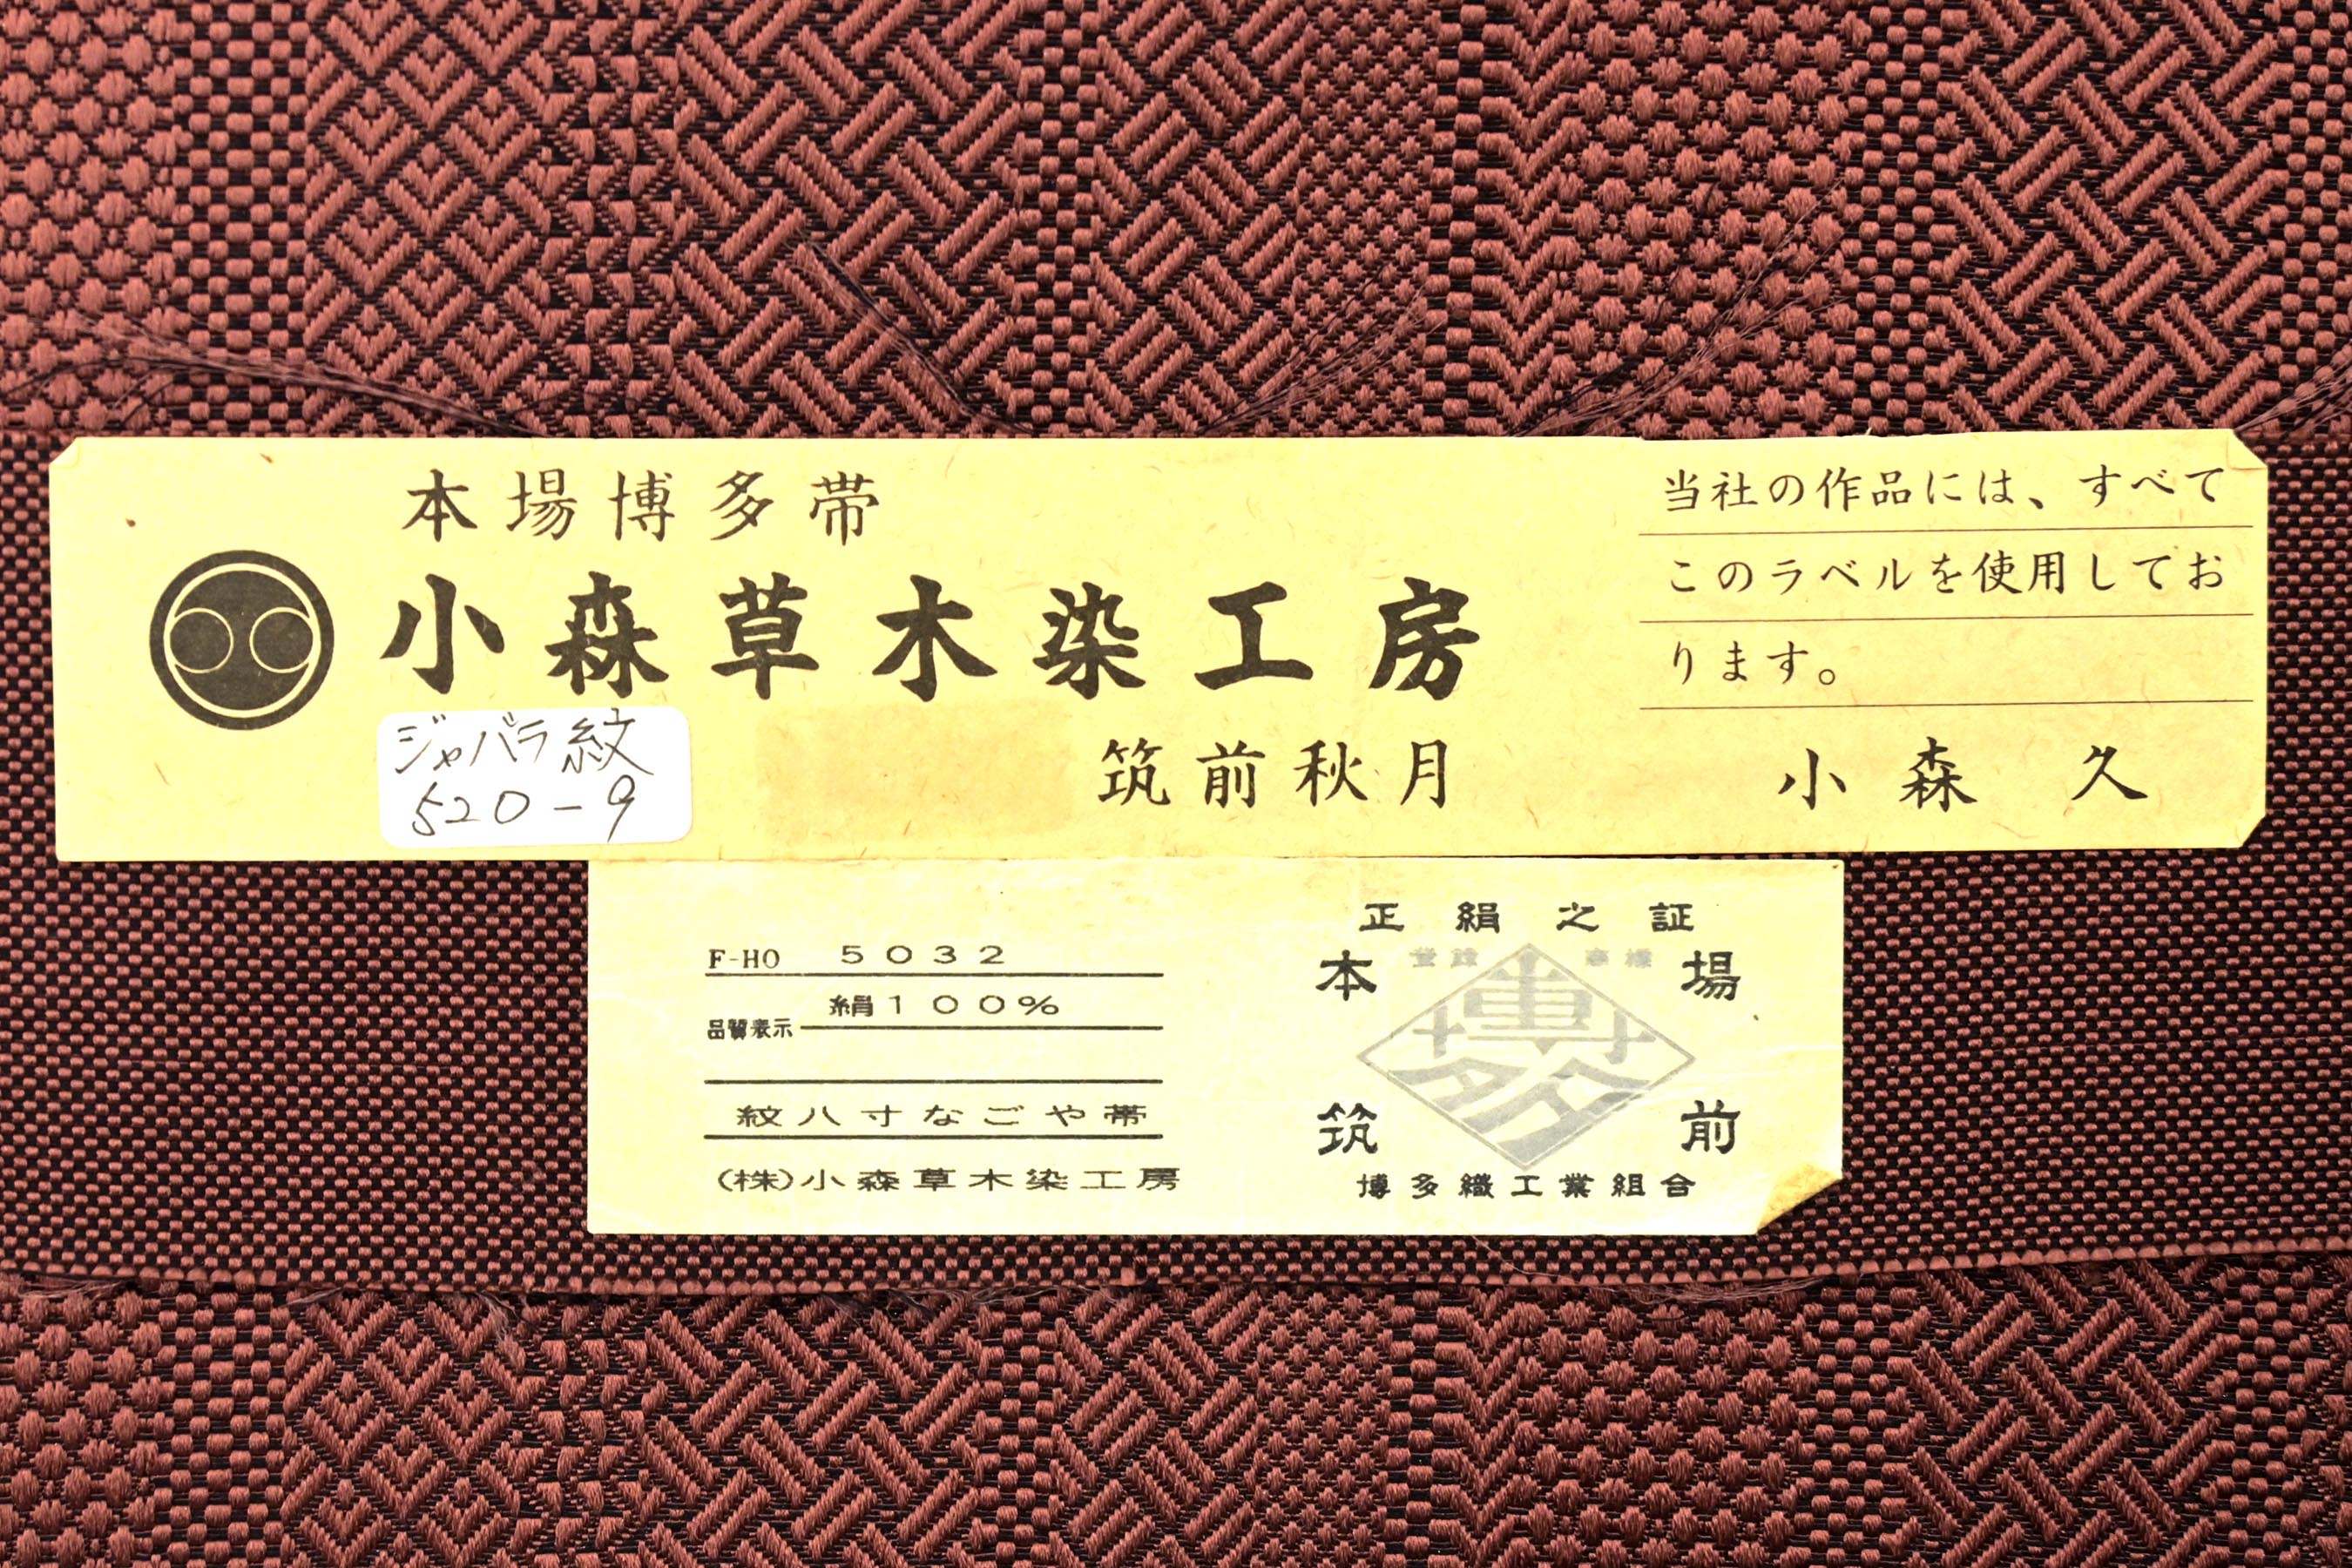 本場博多帯
小森草木染工房
筑前秋月
ジャバラ紋
520-9
当社の作品には、すべて
このラベルを使用してお
ります。
小森 久
F-HO 5032
品質表示 絹100%
紋八寸なごや帯
(株)小森草木染工房
正絹之証
登録 商標
本場
博多
筑前
博多織工業組合